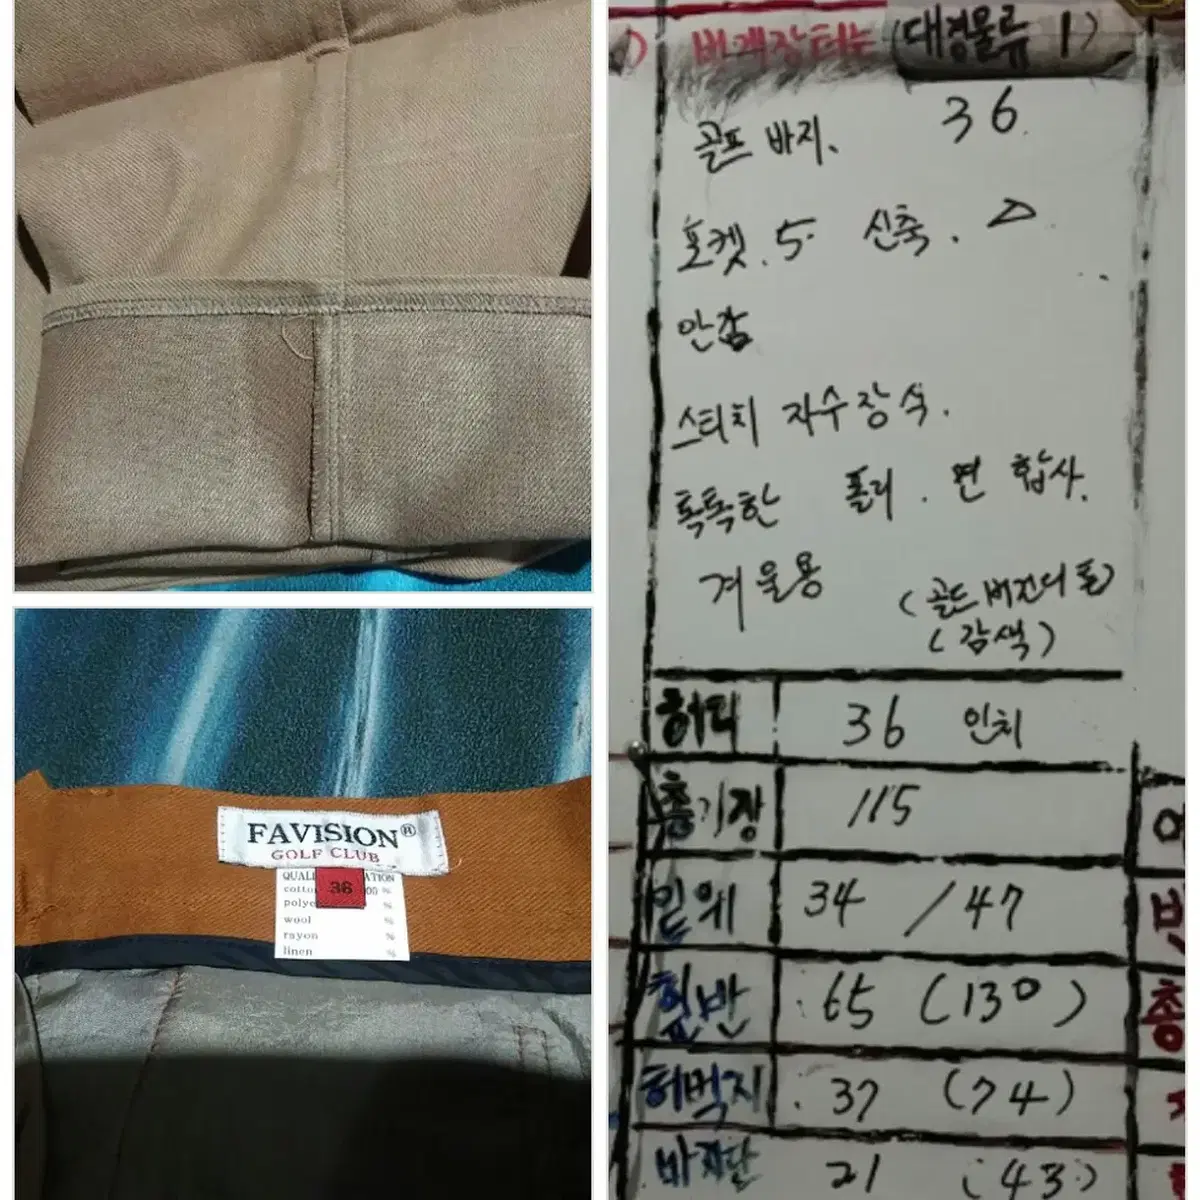 FAVISION®
GOLF CLUB
36
cotto 00 %
polye %
wool %
rayon %
linen %
번개장터는 (대경물류 1)
골프 바지. 36
포켓. 5. 신축. △
안감
스티치 자수장식.
톡톡한 폴리. 면 합사.
겨울용 (골드버건디톤)
(감색)
허리 36 인치
총기장 115
밑위 34 / 47
힙반 . 65 (130)
허벅지 . 37 (74)
바지단 21 (43.)